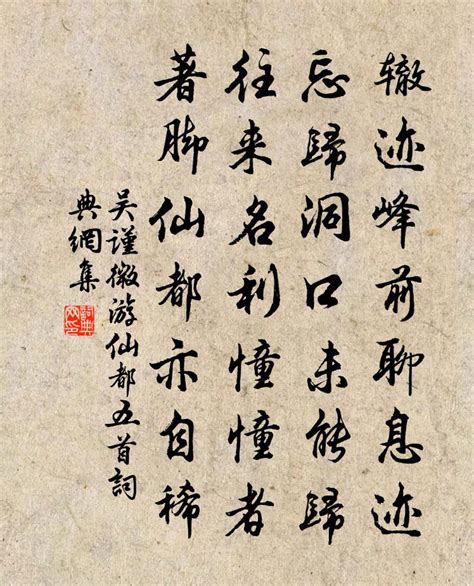 辙迹峰前聊息迹
忘歸洞口未能歸
往来名利憧憧者
著脚仙都亦自稀
吴谨微游仙都五首詞
典網集
詞典
网印